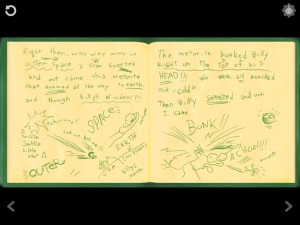 Right then, way way way in
outer space a star sweezed
and out came this meteorite
that zoomed at the sky to earth
and though Billys Window!!!
SPACE
EARTH
OUTER
Billys
house
The metorite bonked Billy
RIGHT on The TOP of his
HEAD!!! We were all knocked
out - cold!
Then Billy sneezed and out
I came
BONK!!
ACHOO!!!!